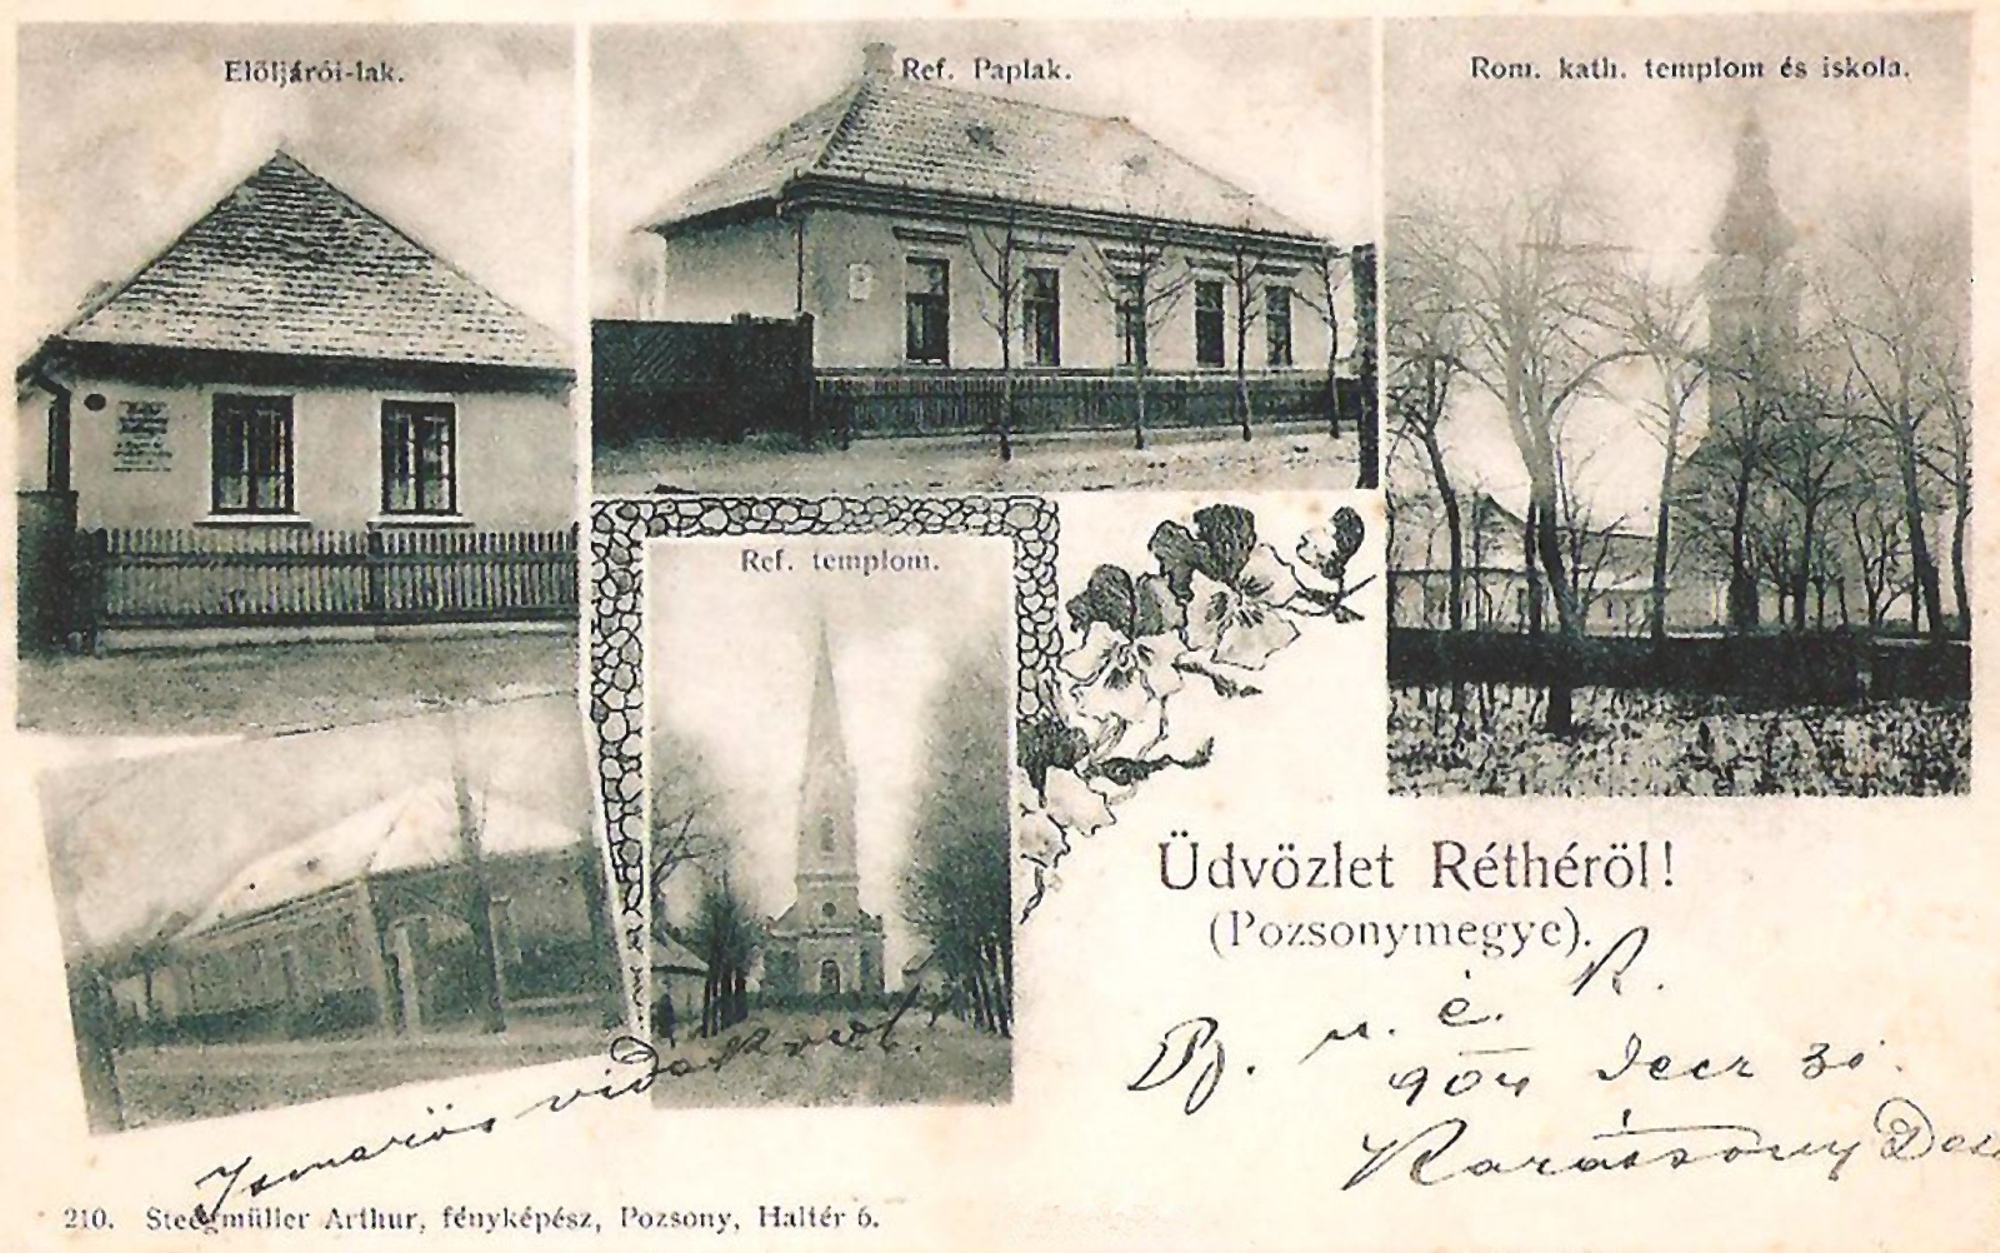 Elöljárói-lak.
Ref. Paplak.
Rom. kath. templom és iskola.
Ref. templom.
Üdvözlet Réthéröl!
(Pozsonymegye).
B. u. é. R.
904 Decr 30.
Karácsony
210. Steegmüller Arthur, fényképész, Pozsony, Haltér 6.